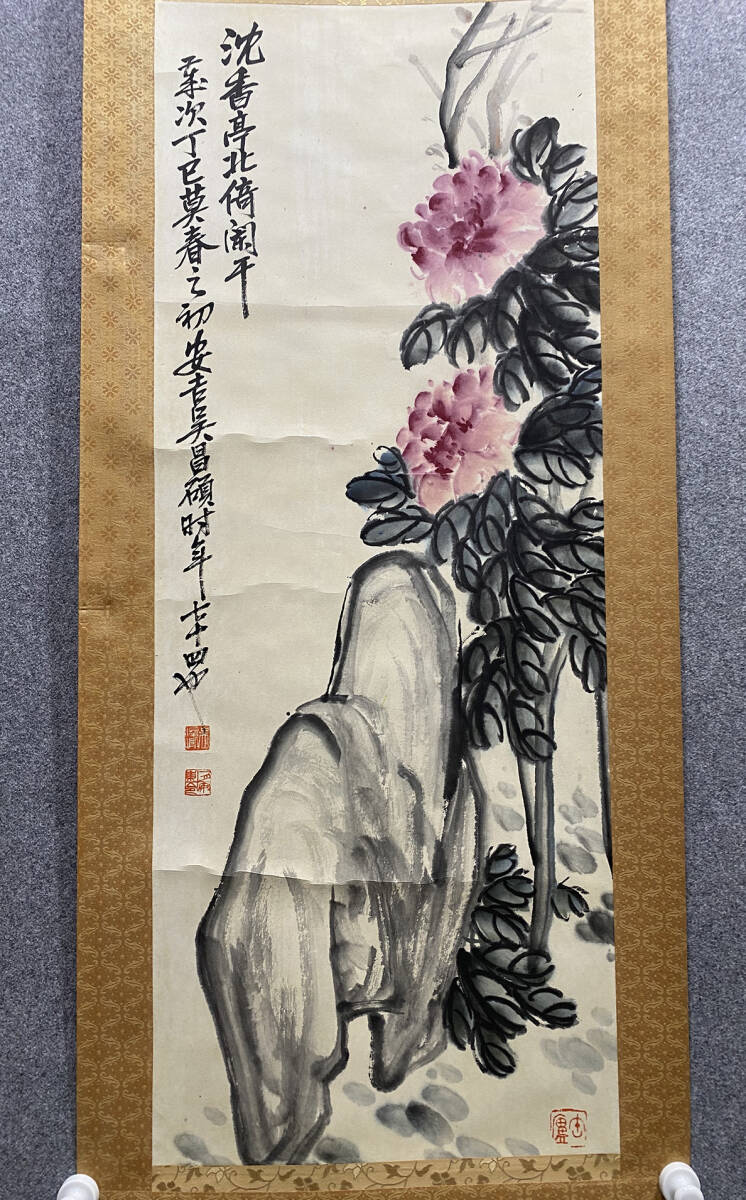 沈香亭北倚闌干
歲次丁巳莫春之初安吉吳昌碩時年七十四